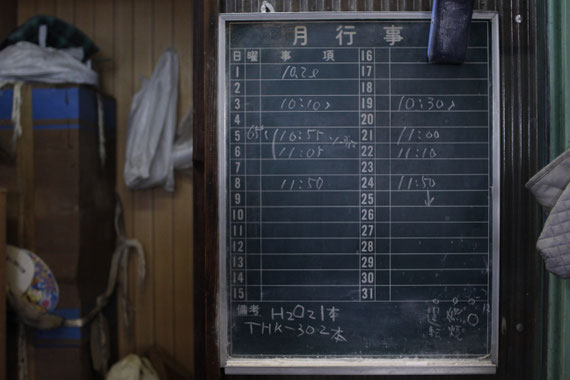 月行事
日 曜 事項 16
1 10,20 17
2 18
3 10:10〃 19 10:30〃
4 20
5 10:55 21 11:00
6 11:05 22 11:10
7 23
8 11:50 24 11:50
9 25 ↓
10 26
11 27
12 28
13 29
14 30
15 31
備考 H2O21本
THK-302本